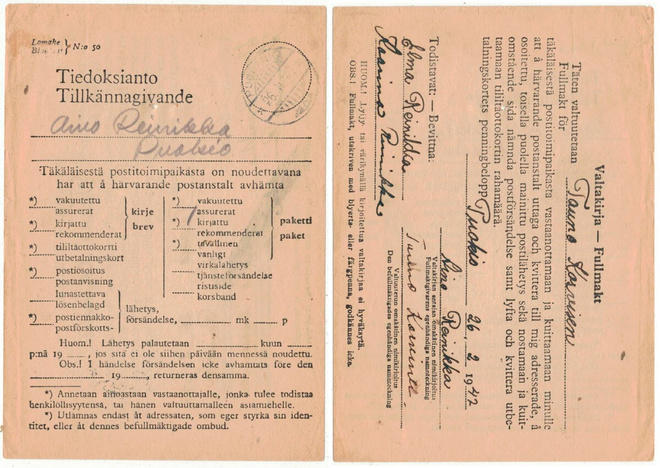 Lomake
Blankett } N:o 50
Tiedoksianto
Tillkännagivande
Aino Reinikka
Puolsio
Täkäläisestä postitoimipaikasta on noudettavana
har att å härvarande postanstalt avhämta
*) vakuutettu
assurerat
*) kirjattu
rekommenderat
kirje
brev
*) tilillttäottokortti
utbetalningskort
*) postiosoitus
postanvisning
lunastettava
lösenbelagd
*) postiennakko-
postförskotts-
*) vakuutettu
assurerat
*) kirjattu
rekommenderat
*) tavallinen
vanligt
paketti
paket
virkalähetys
tjänsteförsändelse
ristiside
korsband
lähetys,
försändelse, mk p
Huom.! Lähetys palautetaan kuun
p:nä 19 , jos sitä ei ole siihen päivään mennessä noudettu.
Obs.! I händelse försändelsen icke avhämtats före den
19 , returneras densamma.
*) Annetaan ainoastaan vastaanottajalle, jonka tulee todistaa
henkilöllisyytensä, tai hänen valtuuttamalleen asiamiehelle.
*) Utlämnas endast åt adressaten, som eger styrka sin iden-
titet, eller åt dennes befullmäktigade ombud.
Valtakirja — Fullmakt
Täten valtuutetaan
Fullmakt för
Tauno Korvisen
täkäläisestä postitoimipaikasta vastaanottamaan ja kuittaamaan minulle
att å härvarande postanstalt uttaga och kvittera till mig adresserade, å
osoitettu, toisella puolella mainittu postilähetys sekä nostamaan ja kuit-
omstående sida nämnda postförsändelse samt lyfta och kvittera utbe-
taamaan tililttäottokortin rahamäärä.
talningskortets penningbelopp.
Puolsio 26/2 1942
Aino Reinikka
Valtakirjan antajan omakätinen nimikirjoitus
Fullmaktsgivarens egenhändiga namnteckning
Todistavat: — Bevittna:
Elma Reinikka
Valtuutetun omakätinen nimikirjoitus
Den befullmäktigades egenhändiga namnteckning
HUOM.! Lyijy- tai värikynällä kirjoitettua valtakirjaa ei hyväksytä.
OBS.! Fullmakt, utskriven med blyerts- eller färgpenna, godkännes icke.